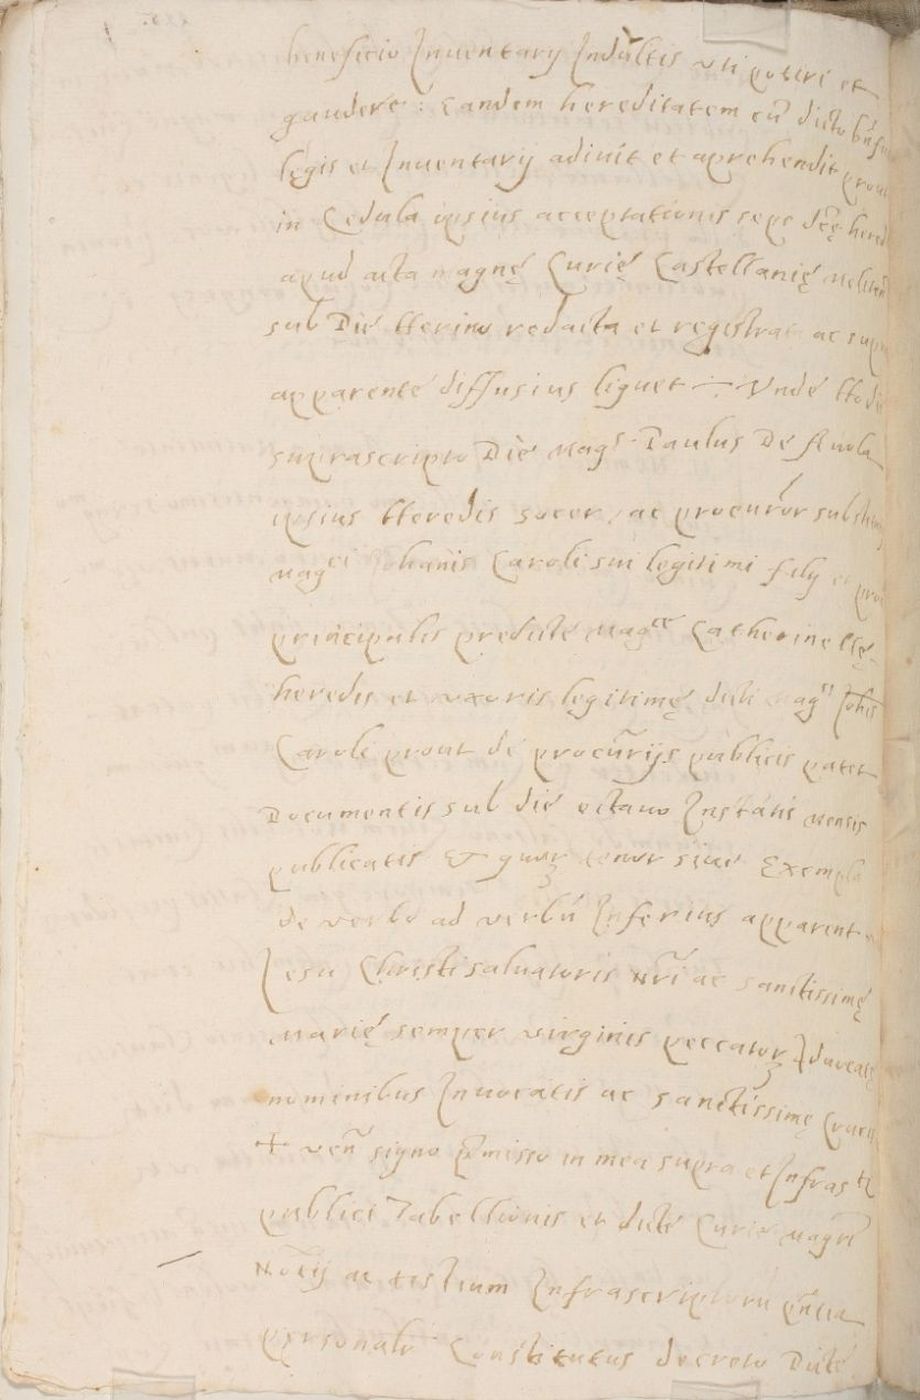 beneficio Inuentarij Indultis uti potiri et
gaudere: eandem hereditatem cũ dicto
legis et Inuentarij adiuit et aprehendit prout
in Cedula ipsius acceptationis sepe dc̃ę hered
apud acta magnę Curię Castellanię
sub Die tterino redacta et registrata ac
apparente diffusius liquet ÷ Vnde ttodie
suprascripto Die Mag.s Paulus De Auola
ipsius tteredis socer, ac procurãor
Mag.ci Johãnis Caroli sui legitimi filij et
principalis predictę Mag.cę Catherinellę
heredis et uxoris legitimę dicti Mag.ci Johis
Caroli prout de procũrijs publicis patet
Documentis sub die octauo Instãtis Mensis
publicatis Et quorꝫ tenor siue Exempla
de verbo ad verbũ Inferius apparent
Iesu Christi saluatoris Nr̃i ac sanctissimę
Marię semper virginis peccatorꝫ Aduocatę
nominibus Inuocatis ac sanctissimę Crucis
+ ven̄ signo p̃misso in mea supra et Infras
publici Tabellionis et dictę Curię Magr̃i
Notãij ac testium Infrascriptorũ p̃ntia
personalr̃ Constitutus decreto Dictę